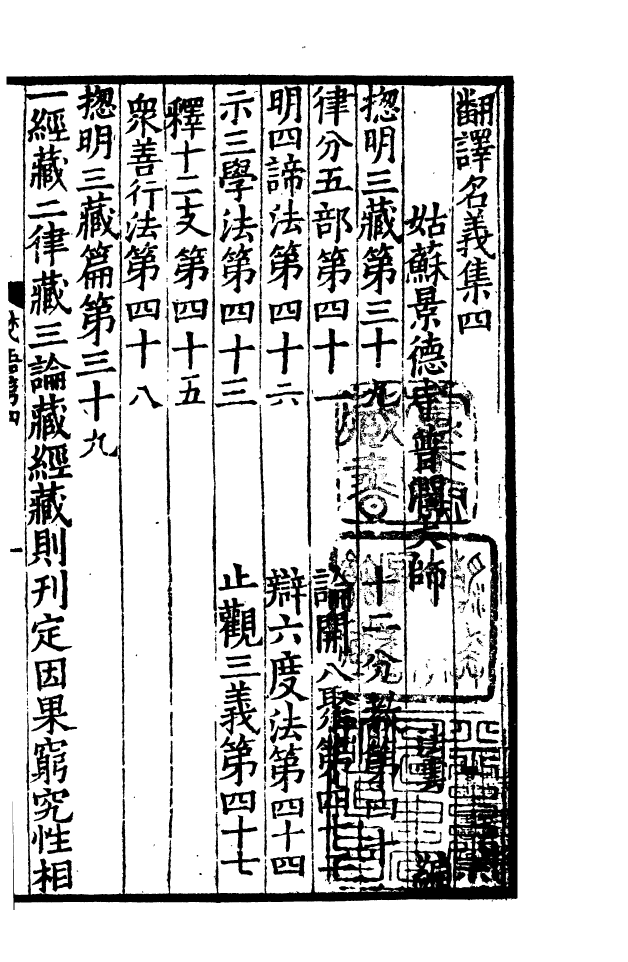 翻譯名義集四
姑蘇景德寺普潤大師 法雲 編
揔明三藏第三十九 十二分教第四十
律分五部第四十一 論開八聚第四十二
明四諦法第四十六 辯六度法第四十四
示三學法第四十三 止觀三義第四十七
釋十二支第四十五
衆善行法第四十八
揔明三藏篇第三十九
一經藏二律藏三論藏經藏則刊定因果窮究性相